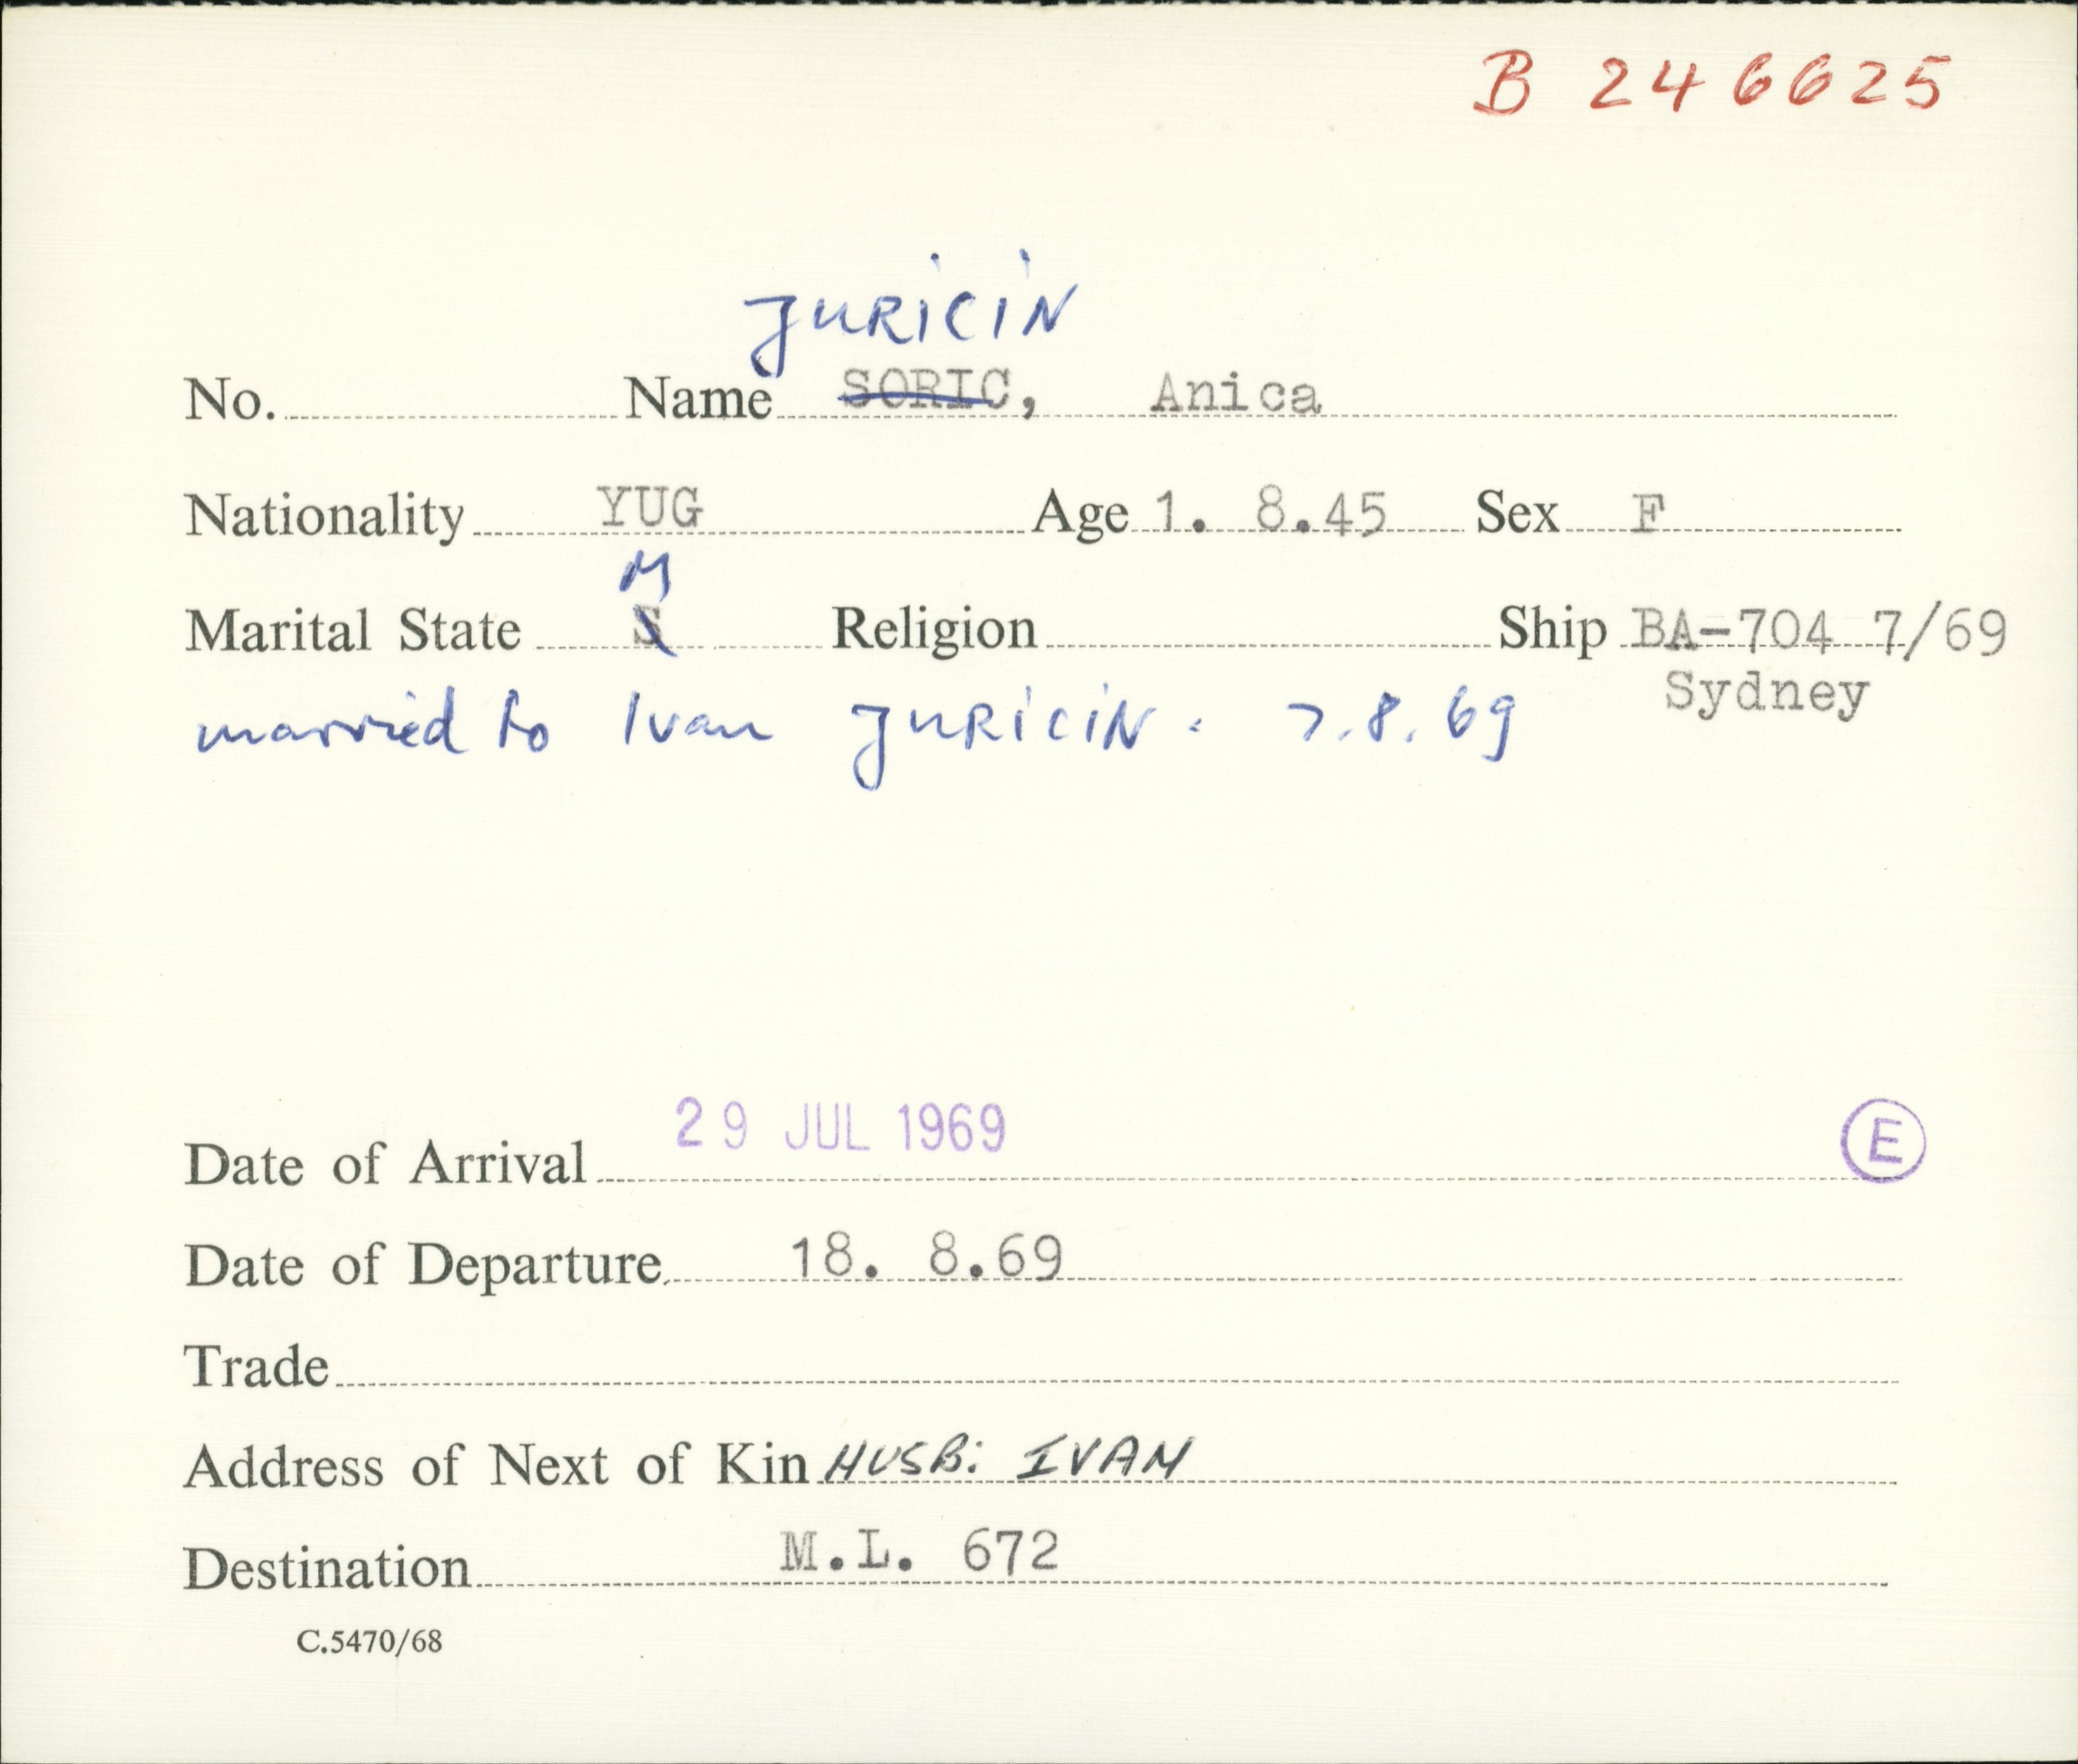 B 246625
JURICIN
No. Name SORIC, Anica
Nationality YUG Age 1. 8.45 Sex F
M
Marital State S Religion Ship BA-704 7/69
Sydney
married to Ivan JURICIN. 7.8.69
29 JUL 1969
Date of Arrival E
Date of Departure 18. 8.69
Trade
Address of Next of Kin HUSB: IVAN
Destination M.L. 672
C.5470/68